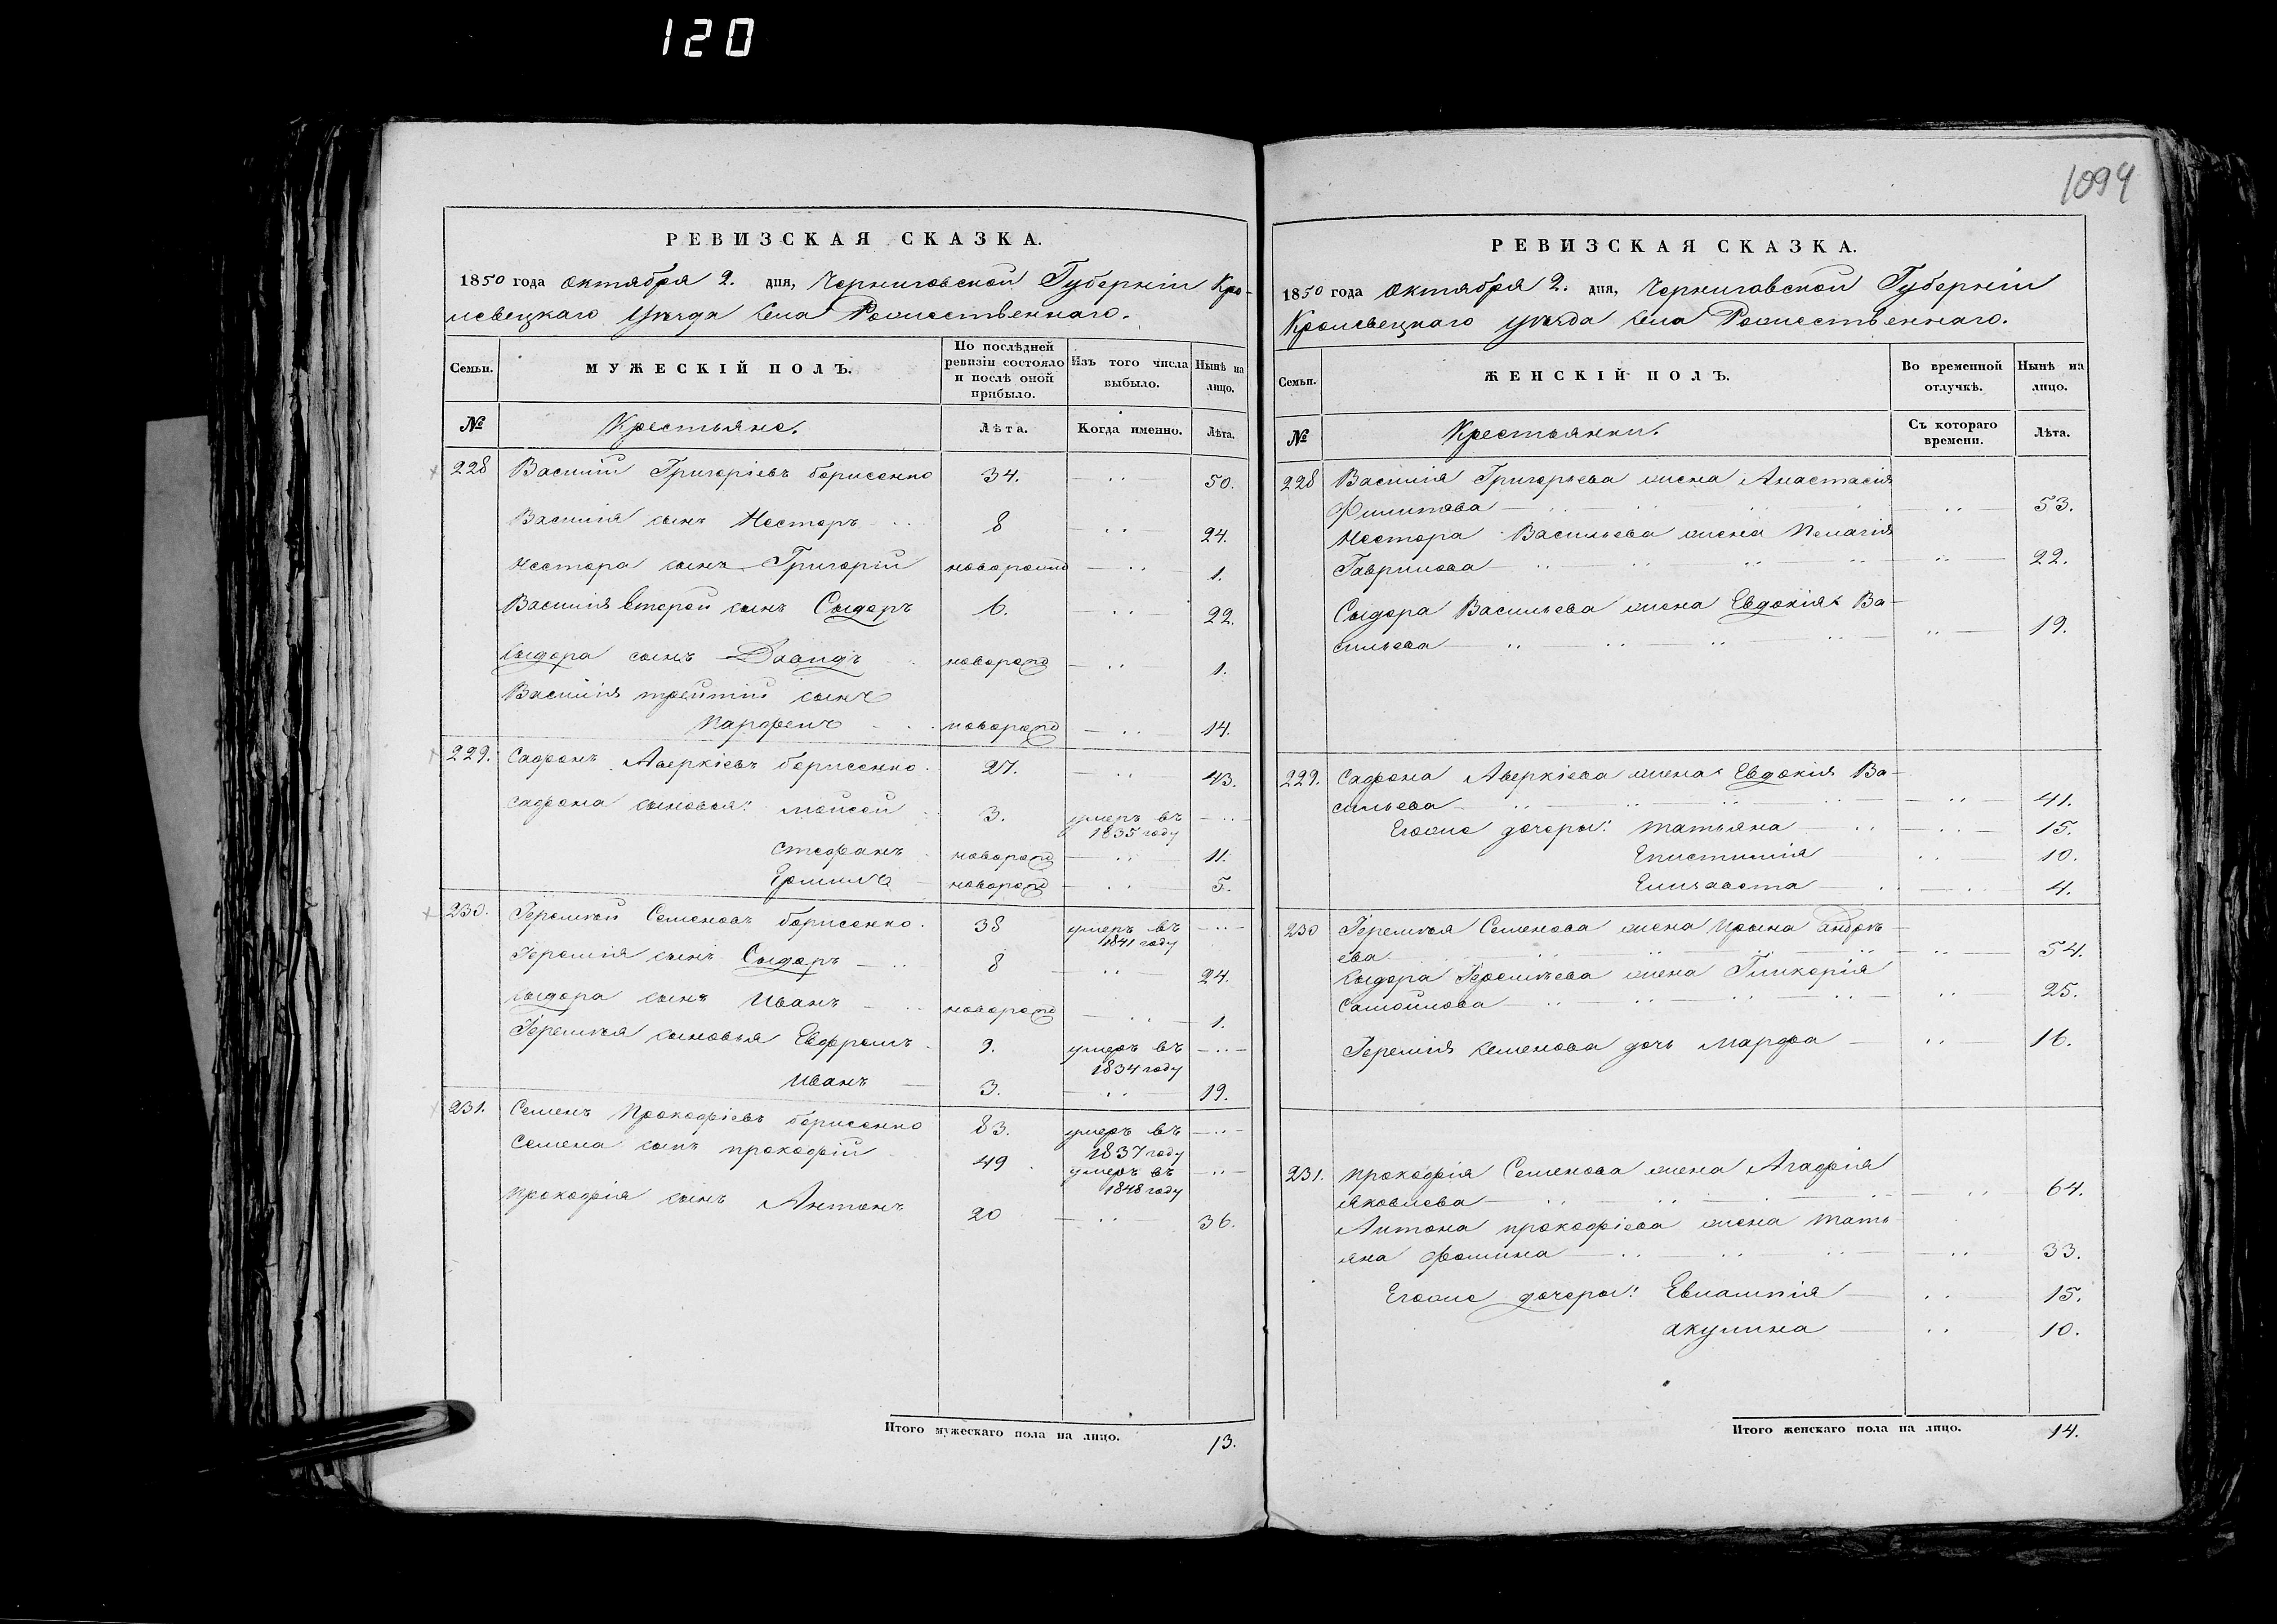 120
1094
РЕВИЗСКАЯ СКАЗКА.
1850 года Октября 2. дня, Черниговской Губерніи Кро-
левецкаго Уѣзда Села Рожественнаго.
Семьи. МУЖЕСКІЙ ПОЛЪ. По послѣдней ревизіи состояло и послѣ оной прибыло. Изъ того числа выбыло. Нынѣ на лицо.
№ Крестьяне. Лѣта. Когда именно. Лѣта.
228 Василій Григоріевъ Борисенко 34. 50.
Василія сынъ Нестеръ 8 24.
Нестора сынъ Григорій новорожд 1.
Василія второй сынъ Сыдоръ 6. 22.
Сыдора сынъ Давидъ новорожд 1.
Василія третій сынъ
Парфенъ новорожд 14.
229. Сафонъ Аверкіевъ Борисенко 27. 43.
Сафона сыновья: Мойсей 3. умеръ въ 1835 году
Стефанъ новорожд 11.
Ермилъ новорожд 5.
230. Іеремѣй Семеновъ Борисенко. 38 умеръ въ 1841 году
Іеремія сынъ Сыдоръ 8 24.
Сыдора сынъ Иванъ новорожд 1.
Іеремѣя сыновья Евфремъ 9. умеръ въ 1834 году
Иванъ 3. 19.
231. Семенъ Прокофіевъ Борисенко 83. умеръ въ 1837 году
Семена сынъ Прокофій 49 умеръ въ 1848 году
Прокофія сынъ Антонъ 20 36.
Итого мужескаго пола на лицо. 13.
РЕВИЗСКАЯ СКАЗКА.
1850 года Октября 2. дня, Черниговской Губерніи
Кролевецкаго Уѣзда Села Рожественнаго.
Семьи. ЖЕНСКІЙ ПОЛЪ. Во временной отлучкѣ. Нынѣ на лицо.
№ Крестьянки. Съ котораго времени. Лѣта.
228 Василія Григорьева жена Анастасія
Филипова 53.
Нестора Васильева жена Пелагія
Гаврилова 22.
Сыдора Васильева жена Евдокія Ва-
сильева 19.
229. Сафона Аверкіева жена Евдокія Ва-
сильева 41.
Егоже дочеры: Татьяна 15.
Епистимія 10.
Елизавета 4.
230 Іеремѣя Семенова жена Ирына Андрѣ-
ева 54.
Сыдора Іеремѣева жена Гликерія
Самойлова 25.
Іеремія Семенова дочь Марфа 16.
231. Прокофія Семенова жена Агафія
Яковлева 64.
Антона Прокофіева жена Тать-
яна Фомина 33.
Егоже дочеры: Евлампія 15.
Акулина 10.
Итого женскаго пола на лицо. 14.